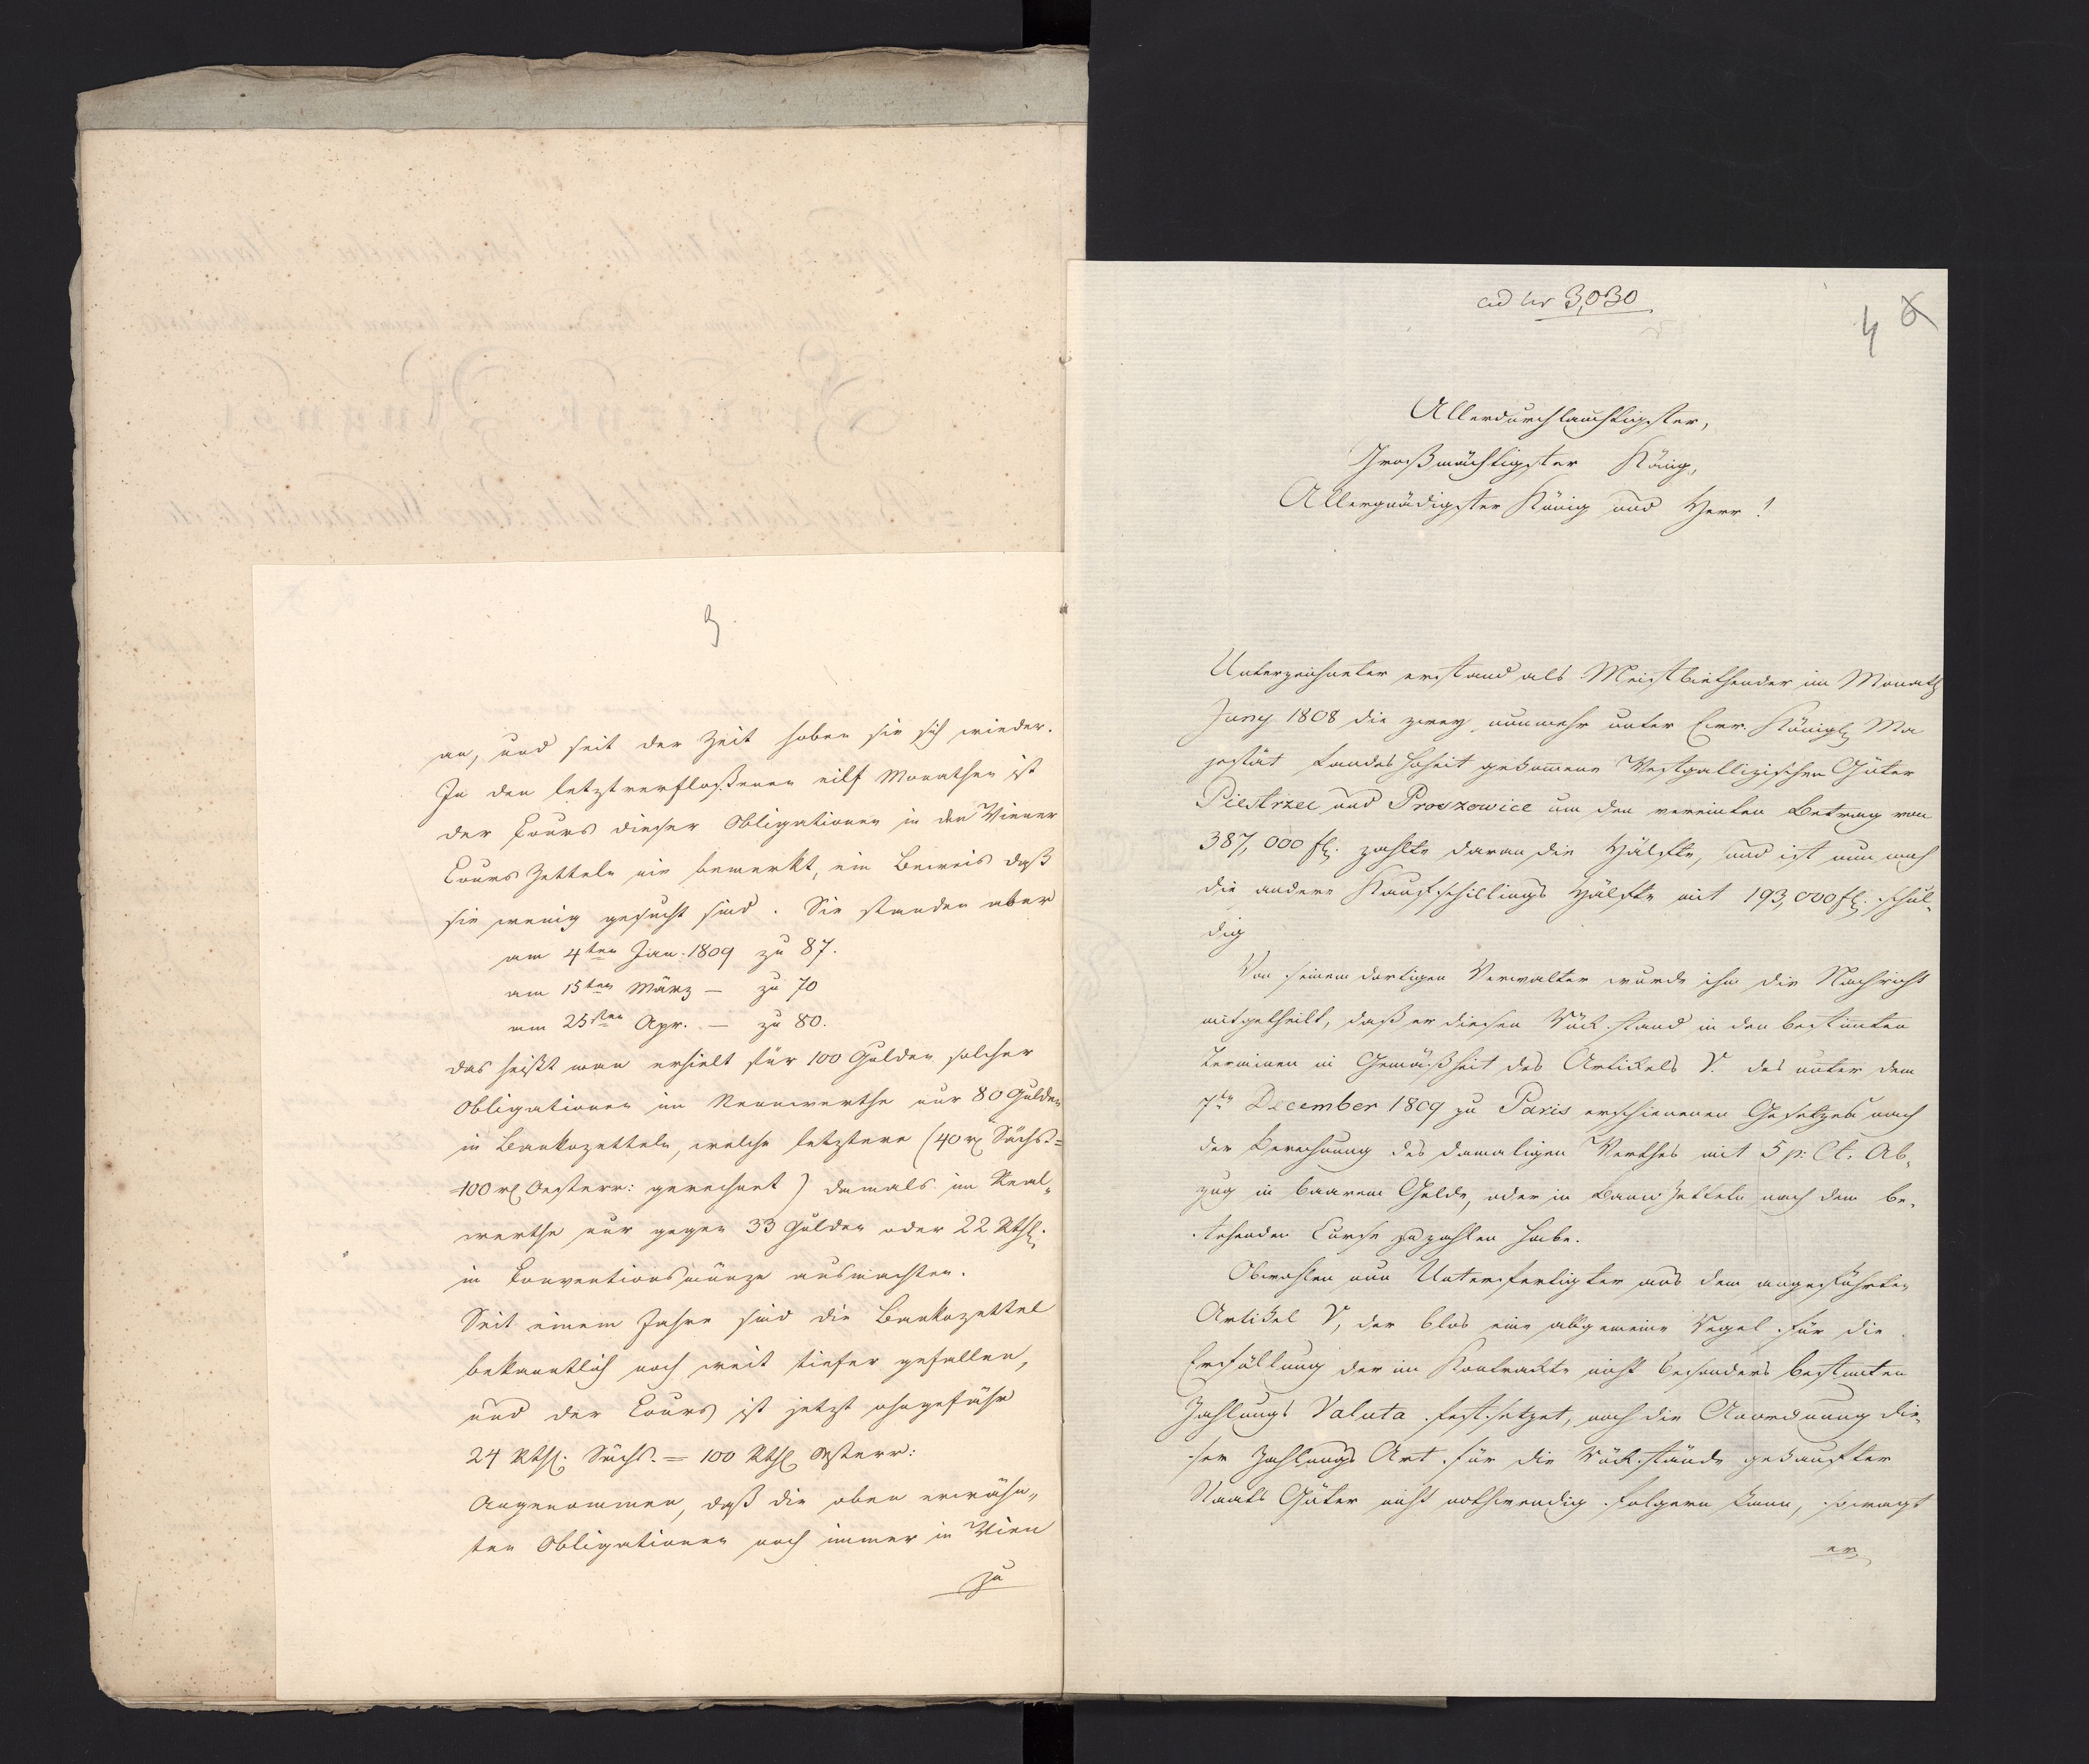 3
an, und seit der Zeit hoben sie sich wieder.
In den letztverfloßenen eilf Monathen ist
der Cours dieser Obligationen in den Wiener
Cours Zetteln nie bemerkt, ein Beweis daß
sie wenig gesucht sind. Sie standen aber
am 4ten Jan: 1809 zu 87.
am 15ten März — zu 70
am 25sten Apr. — zu 80.
das heißt man erhielt für 100 Gulden solcher
Obligationen im Nennwerthe nur 80 Gulden
in Bankozetteln, welche letztere (40 rl Sächs. =
100 rl Oesterr: gerechnet) damals im Real-
werthe nur gegen 33 Gulden oder 22 Rthl.
in Conventionsmünze ausmachten.
Seit einem Jahre sind die Bankozettel
bekanntlich noch weit tiefer gefallen,
und der Cours ist jetzt ohngefähr
24 Rthl. Sächs. = 100 Rthl Osterr:
Angenommen, daß die oben erwähn-
ten Obligationen noch immer in Wien
zu
ad nr 3,030
4 6
Allerdurchlauchtigster,
Großmächtigster König,
Allergnädigster König und Herr!
Unterzeichneter erstand als Meistbiethender im Monath
Juny 1808 die zwey nunmehr unter Euer Königl Ma
jestät Landes Hoheit gekommene Westgallizischen Güter
Piestrzec und Proszowice um den vereinten Betrag von
387,000 fl. zahlte daran die Hälfte, und ist nun noch
die andere Kaufschillings Hälfte mit 193,000 fl. schul-
dig
Von seinem dortigen Verwalter wurde ihm die Nachricht
mitgetheilt, daß er diesen Rückstand in den bestimten
Terminen in Gemäßheit des Artikels V. des unter dem
7ten December 1809 zu Paris erschienenen Gesetzes nach
der Berechnung des damaligen Werthes mit 5 p: Ct. Ab-
zug in baarem Gelde, oder in Banco Zetteln nach dem be-
stehenden Curse zu zahlen habe.
Obwohlen nun Unterfertigter aus dem angeführten
Artikel V, der blos eine allgemeine Regel für die
Erfüllung der im Kontrakte nicht besonders bestimten
Zahlungs Valuta festsetzet, noch die Anordnung die-
ser Zahlungs Art für die Rückstände gekaufter
Staats Güter nicht nothwendig folgern kann, so wagt
er